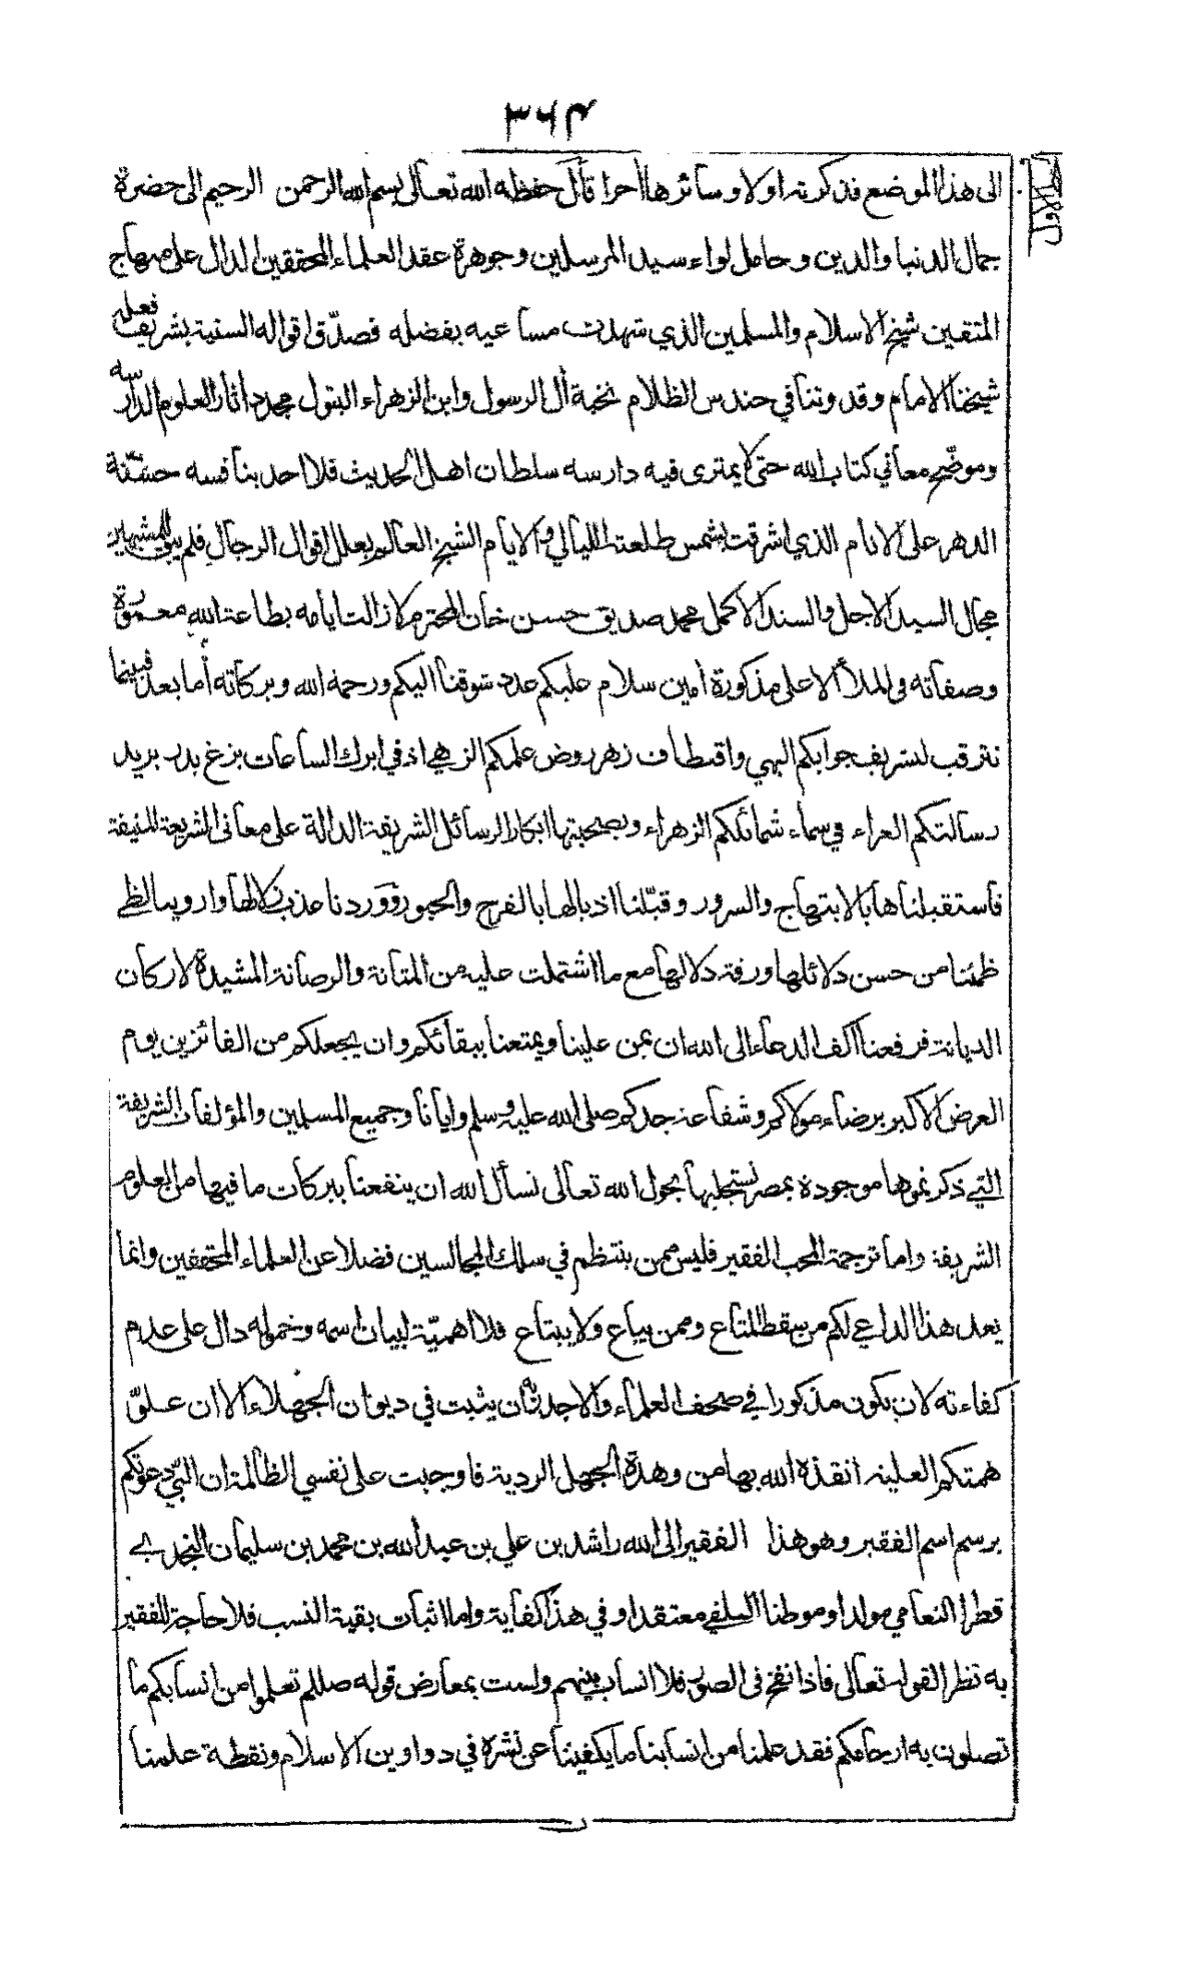 ۳۶۴
الى هذا الموضع فذكرته اولا وسأثرها أحرا قال حفظه الله تعالى بسم الله الرحمن الرحيم الى حضرة
جمال الدنيا والدين وحامل لواء سيد المرسلين وجوهرة عقد العلماء المحققين الدال على منهاج
المتقين شيخ الاسلام والمسلمين الذي شهدت مساعيه بفضله فصدّق اقواله السنية بشريف فعله
شيخنا الامام وقدوتنا في حندس الظلام نخبة أل الرسول وابن الزهراء البتول مجدد أثار العلوم الدارسه
وموضّح معاني كتاب الله حتى لا يمترى فيه دارسه سلطان اهل الحديث فلا احد ينافسه حسنة
الدهر على الانام الذي اشرقت بشمس طلعته الليالي والايام الشيخ العالم بعلل اقوال الرجال فلم يبق للمشهاير
مجال السيد الاجل والسند الاكمل محمد صديق حسن خان المحترم لا زالت ايامه بطاعة الله معمورة
وصفاته في الملأ الاعلى مذكورة أمين سلام عليكم عدد شوقنا اليكم ورحمة الله وبركاته أما بعد فبينما
نترقب لشريف جوابكم البهي واقتطاف زهر روض علمكم الزهي اذ في ابرك الساعات بزغ بدر بريد
رسالتكم الغراء في سماء شمائلكم الزهراء وبصحبتها ابكار الرسائل الشريفة الدالة على معاني الشريعة المنيفة
فاستقبلناها بالابتهاج والسرور وقبّلنا اذيالها بالفرح والحبور ووردنا عذب زلالها واروينا لظى
ظمئنا من حسن دلائلها ورقة دلالها مع ما اشتملت عليه من المتانة والرصانة المشيدة لاركان
الديانة فرفعنا اكف الدعاء الى الله ان يمن علينا ويمتعنا ببقائكم وان يجعلكم من الفائزين يوم
العرض الاكبر برضاء مولاكم وشفاعة جدكم صلى الله عليه وسلم وايانا وجميع المسلمين والمؤلفات الشريفة
التي ذكرتموها موجودة بمصر نستجلبها بحول الله تعالى نسأل الله ان ينفعنا ببركات ما فيها من العلوم
الشريفة واما ترجمة المحب الفقير فليس ممن ينتظم في سلك المجالسين فضلا عن العلماء المحققين وانما
يعد هذا الداعي لكم من سقط المتاع وممن يباع ولا يبتاع فلا اهميّة لبيان اسمه وخموله دال على عدم
كفاءته لان يكون مذكورا في صحف العلماء والاجدر ان يثبت في ديوان الجهلاء الا ان علوّ
همتكم العلية انقذه الله بها من وهدة الجهل الردية فاوجبت على نفسي الظالمة ان البّي دعوتكم
برسم اسم الفقير وهو هذا الفقير الى الله راشد بن علي بن عبد الله بن محمد بن سليمان النجدي
قطرا النعامي مولدا وموطنا السلفي معتقدا وفي هذا كفاية واما اثبات بقية النسب فلا حاجة للفقير
به نظرا لقوله تعالى فاذا نفخ في الصور فلا انساب بينهم ولست بمعارض قوله صللم تعلموا من انسابكم ما
تصلون به ارحامكم فقد علمنا من انسابنا ما يكفينا عن نشره في دواوين الاسلام ونقطة علمنا